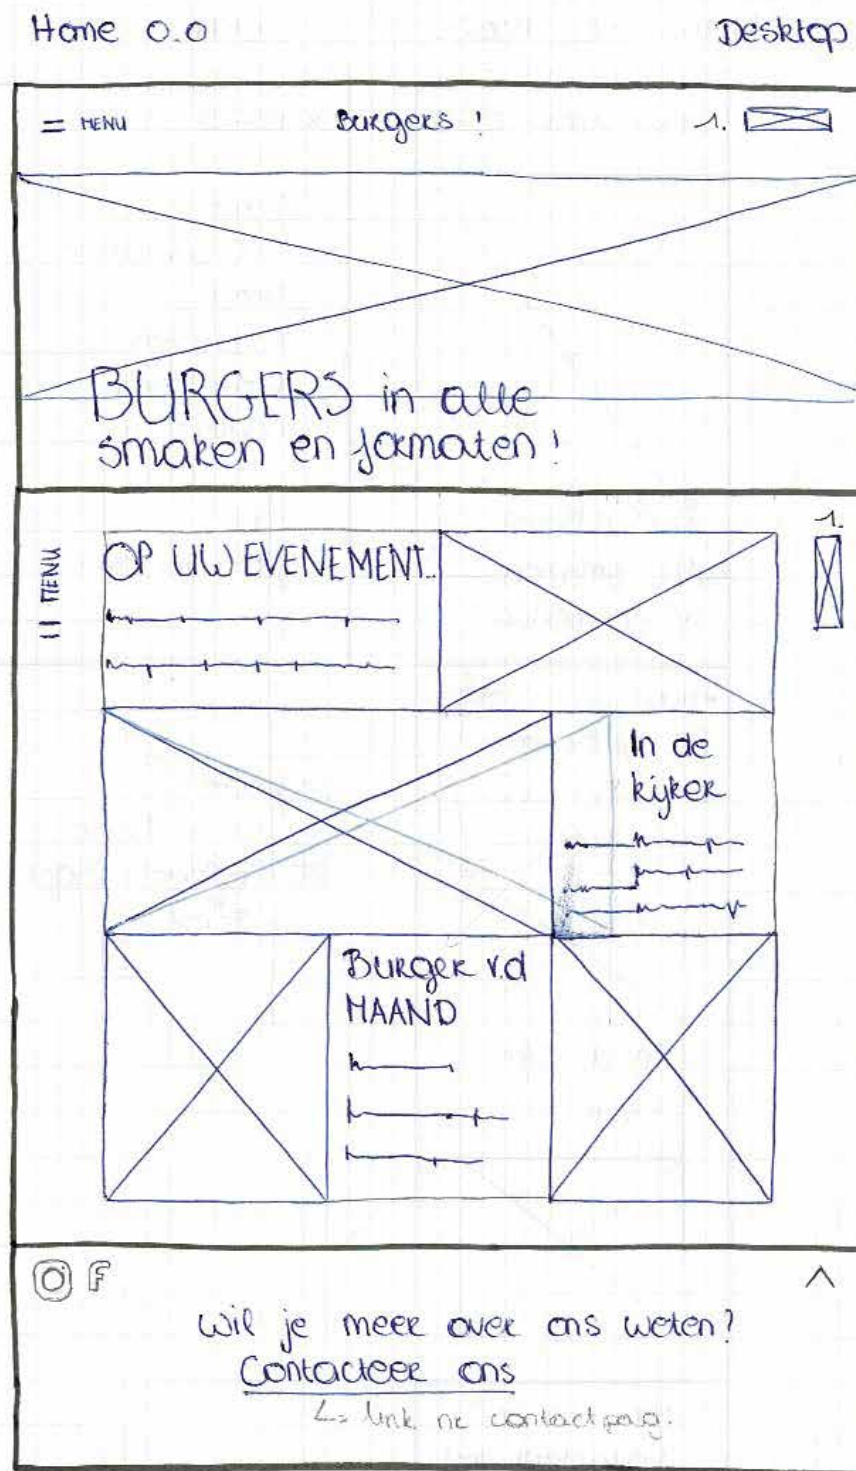 Home 0.0
Desktop
= MENU
Burgers !
1.
BURGERS in alle
smaken en formaten !
MENU
1.
OP UW EVENEMENT..
In de
kijker
Burger v.d
MAAND
F
Wil je meer over ons weten?
Contacteer ons
link nr contactpag.